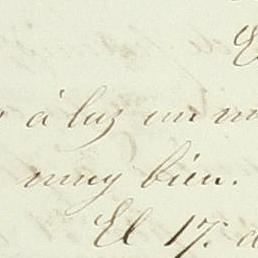 á luz un
muy bien.
El 17.